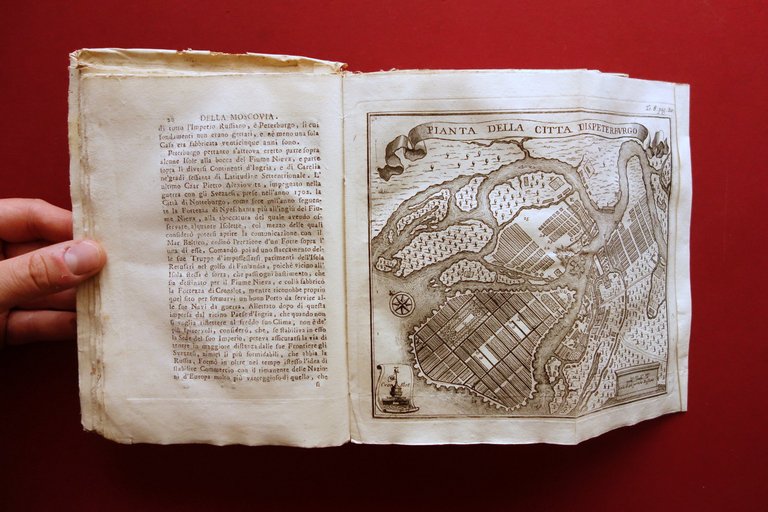 28 DELLA MOSCOVIA.
di tutto l'Imperio Russiano, é Peterburgo, li cui
fondamenti non erano gettati, e nè meno una sola
Casa era fabbricata venticinque anni sono.
Peterburgo pertanto s'attrova eretto parte sopra
alcune Isole alla bocca del Fiume Niera, e parte
sopra li diversi Continenti d'Ingria, e di Carelia
ne'gradi sessanta di Latitudine Settentrionale. L'
ultimo Czar Pietro impegnato nella
guerra con gli Svezzesi, prese nell'anno 1702. la
Città di Noteburgo, come fece nell'anno seguen-
te la Fortezza di all'ingiù del Fiu-
me Niera, alla sboccatura del quale avendo os-
servate alquante Isolette, col mezzo delle quali
considerò potersi aprire la comunicazione con il
Mar Baltico, ordinò l'erezione d'un Forte sopra l'
una di esse. Comandò poi ad uno staccamento del-
le sue Truppe d'impossessarsi parimenti dell'Isola
Retusari nel golfo di Finlandia, poichè vicino all'
Isola stessa è forza, che passi ogni bastimento, che
sia destinato per il Fiume Niera, e colà fabbricò
la Fortezza di Cronslot, mentre riconobbe proprio
quel sito per formarvi un buon Porto da servire al-
le sue Navi da guerra. Allettato dopo di questa
impresa dal vicino Paese d'Ingria, che quando non
si voglia riflettere al freddo suo Clima, non è de'
più spiacevoli, considerò, che, se stabiliva in esso
la Sede del suo Imperio, poteva assicurarsi la via di
tenere in maggiore distanza dalle sue Frontiere gli
Svezzesi, nimici li più formidabili, che abbia la
Russia. Formò in oltre nel tempo istesso l'idea di
stabilire Commercio con il rimanente delle Nazio-
ni d'Europa molto più vantaggioso di quello, che
si
PIANTA DELLA CITTA DI SPETERBURGO